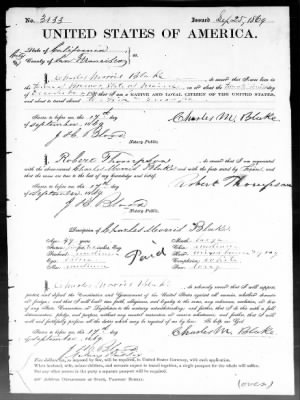 No. 2133 Issued Sep 25, 1869
UNITED STATES OF AMERICA.
State of California
County of San Francisco
I, Charles Morris Blake, do swear that I was born in the
State of Maine, on
that I am a NATIVE AND LOYAL CITIZEN OF THE UNITED STATES,
and about to travel abroad
Sworn to before me this 17th
day of September 1869
Charles M. Blake
J H Blood
Notary Public.
I, Robert Thompson, do swear that I am acquainted
with the above-named Charles Morris Blake, and with the facts stated by him, and
that the same are true to the best of my knowledge and belief.
Sworn to before me this 17th
day of September 1869
Robert Thompson
J H Blood
Notary Public.
Description of Charles Morris Blake
Age: 49 years
Mouth: large
Stature:
Chin: medium
Forehead: medium
Hair:
Eyes:
Complexion:
Nose: medium
Face: long
Paid
I, Charles Morris Blake, do solemnly swear that I will support,
protect and defend the Constitution and Government of the United States against all enemies, whether domestic
or foreign; and that I will bear true faith, allegiance, and loyalty to the same, any ordinance, resolution, or law
of any State, Convention or Legislature to the contrary notwithstanding; and further, that I do this with a full
determination, pledge, and purpose, without any mental reservation or evasion whatsoever; and further, that I will
well and faithfully perform all the duties which may be required of me by law. So help me God.
Sworn to before me this 17th day of
September 1869
Charles M. Blake
J H Blood
Notary Public
Five dollars, tax imposed by law, will be required, in United States Currency, with each application.
When husband, wife, minor children, and servants expect to travel together, a single passport for the whole will suffice.
For any other person in the party a separate passport will be required.
Address DEPARTMENT OF STATE, PASSPORT BUREAU.
(over)